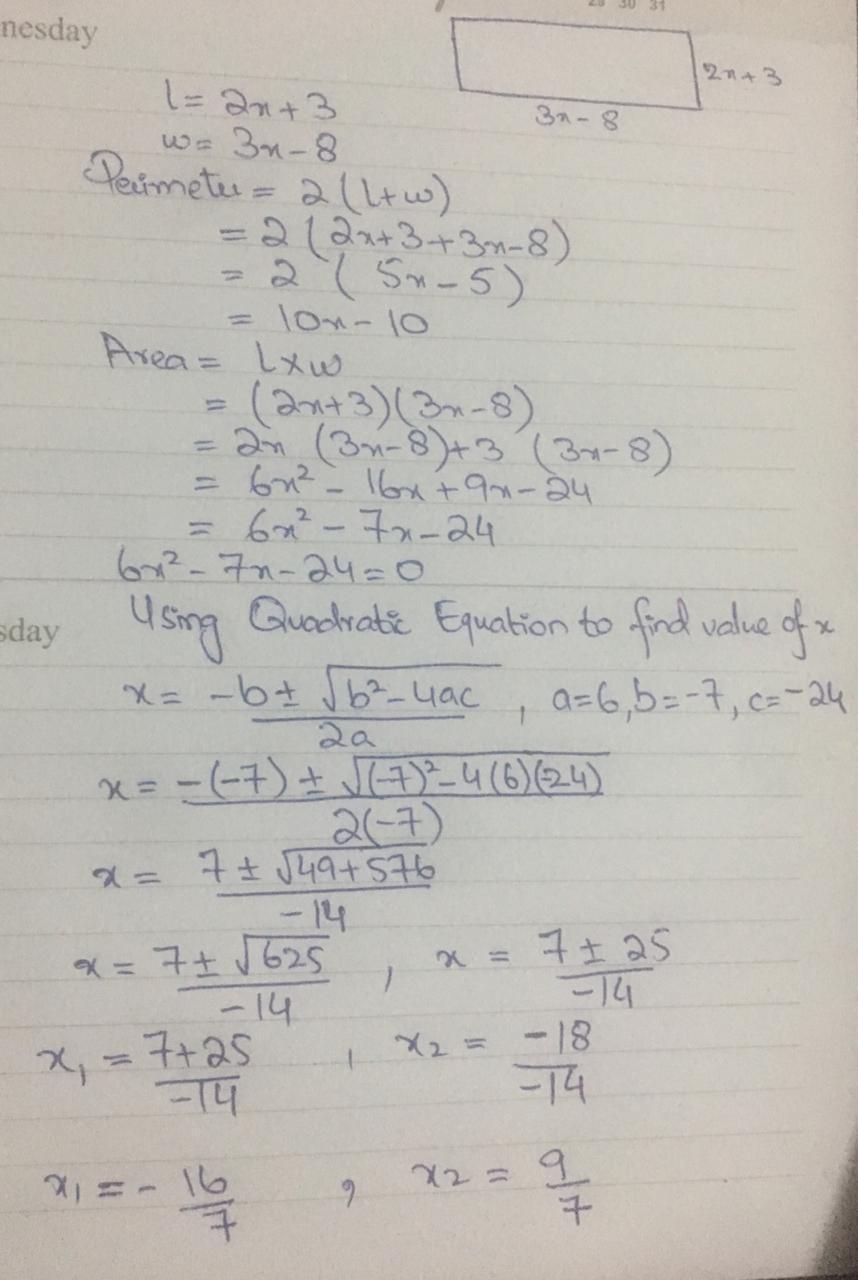 29 30 31
nesday
2x+3
3x-8
l= 2x+3
w= 3x-8
Perimeter = 2(l+w)
= 2(2x+3+3x-8)
= 2 ( 5x-5)
= 10x-10
Area = L×w
= (2x+3)(3x-8)
= 2x (3x-8)+3 (3x-8)
= 6x² - 16x + 9x - 24
= 6x² - 7x - 24
6x² - 7x - 24 = 0
sday
Using Quadratic Equation to find value of x
x = -b ± √b²-4ac / 2a , a=6, b=-7, c=-24
x = -(-7) ± √(-7)²-4(6)(-24) / 2(-7)
x = 7 ± √49+576 / -14
x = 7 ± √625 / -14 , x = 7 ± 25 / -14
x₁ = 7+25 / -14 , x₂ = -18 / -14
x₁ = - 16 / 7 , x₂ = 9 / 7